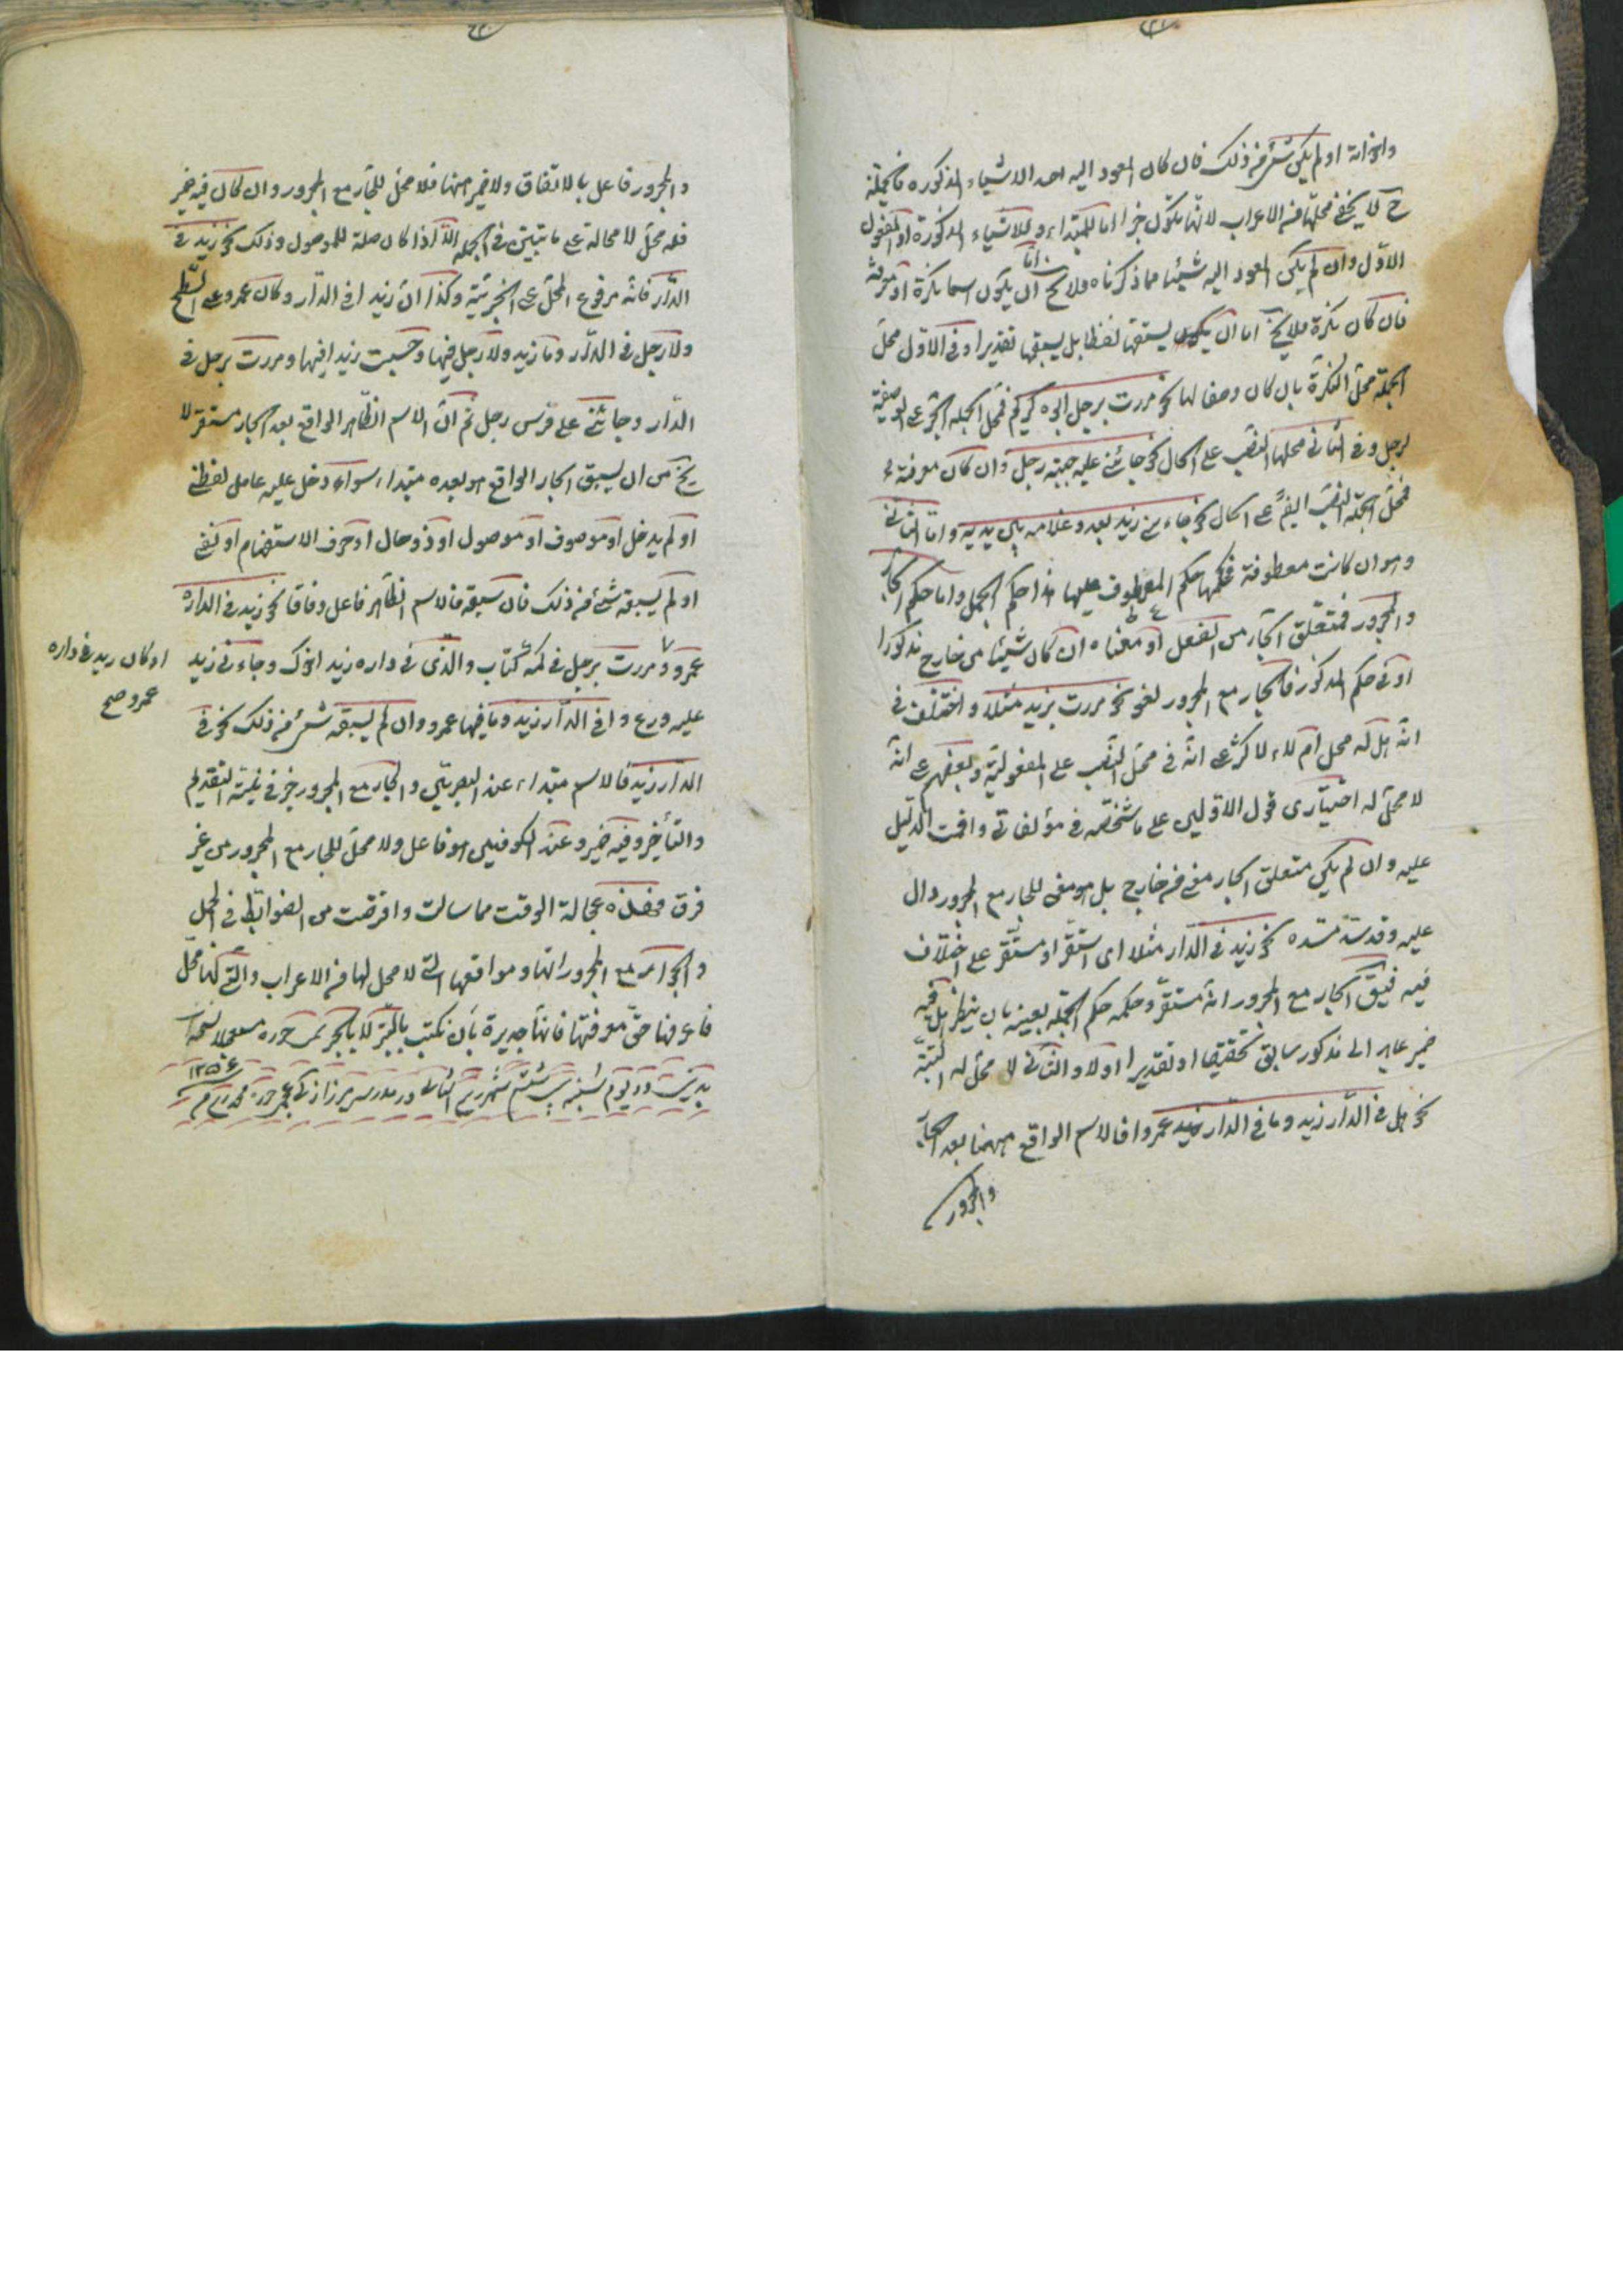 واخواته او لم يكن شئ من ذلك فان كان المعود اليه احد الاشياء المذكوره فالجملة
ح لا يخفى محلها من الاعراب لانها تكون خبرا اما للمبتداء و للاشياء المذكورة او المفعول
الاول وان لم يكن المعود اليه شيئا مما ذكرناه فلا يخ اما ان يكون اسما نكرة او معرفة
فان كان نكرة فلا يخ اما ان يسبقها لفظا بل يسبقها تقديرا وفى الاول محل
الجملة محل النكرة بان كان وصفا لها نحو مررت برجل ابوه كريم فمحل الجملة الجر على الوصفية
لرجل وفى الثانى محلها النصب على الحال نحو جائنى عليه جبته رجل وان كان معرفة
فمحل الجملة النصب ايضا على الحال نحو جاءنى زيد يعدو غلامه بين يديه واما الثانى
وهو ان كانت معطوفة فحكمها حكم المعطوف عليها هذا حكم الجمل واما حكم الجار
والمجرور فمتعلق الجار من الفعل او معناه ان كان شيئا من خارج مذكورا
او فى حكم المذكور فالجار مع المجرور لغو نحو مررت بزيد مثلا واختلف فى
انه هل له محل ام لا فالاكثر على انه فى محل النصب على المفعولية وبعضهم على انه
لا محل له اختيارى قول الاولين على ما شخصته فى مؤلفاتى واقمت الدليل
عليه وان لم يكن متعلق الجار معنى من خارج بل هو معنى للجار مع المجرور دال
عليه وقد سد مسده نحو زيد فى الدار مثلا اى استقر او مستقر على اختلاف
فيه فيق الجار مع المجرور انه مستقر وحكمه حكم الجملة بعينه بان ينظر هل فيه
ضمير عايد الى مذكور سابق تحقيقا او تقديرا اولا والثانى لا محل له البتة
نحو هل فى الدار زيد وما فى الدار عمرو فالاسم الواقع ههنا بعد الجار
والمجرور
والمجرور فاعل بالاتفاق ولا ضمير ههنا فلا محل للجار مع المجرور وان كان فيه ضمير
فله محل لا محالة على ما تبين فى الجملة الا اذا كان صلة للموصول وذلك نحو زيد فى
الدار فانه مرفوع المحل على الخبرية وكذا ان زيدا فى الدار وكان عمرو على السطح
ولا رجل فى الدار وما زيد ولا رجل فيها وحسبت زيدا فيها ومررت برجل فى
الدار وجائنى على فرس رجل ثم ان الاسم الظاهر الواقع بعد الجار مستقر لا
يخ من ان يسبق الجار الواقع هو بعده مبتداء سواء دخل عليه عامل لفظى
او لم يدخل او موصوف او موصول او ذو حال او حرف الاستفهام او نفى
او لم يسبقه شئ من ذلك فان سبقه فالاسم الظاهر فاعل وفاقا نحو زيد فى الداره
عمرو و مررت برجل فى كمه كتاب والذى فى داره زيد اخوك وجاءنى زيد
او كان زيد فى داره
عمرو صح
عليه درع وافى الدار زيد وما فيها عمرو وان لم يسبقه شئ من ذلك نحو فى
الدار زيد فالاسم مبتداء عند البصريين والجار مع المجرور خبر فى نية التقديم
والتأخير وفيه ضمير وعند الكوفيين هو فاعل ولا محل للجار مع المجرور من غير
فرق فخذ هذه عجالة الوقت مما سالت واقرضت من الضوابط فى الجمل
والجوار مع المجرورات ومواقعها التى لا محل لها من الاعراب والتى لها محل
فاعرفها حق معرفتها فانها جديرة بان تكتب بالتبر لا بالحبر
در يوم شنبه شهر ربيع الثانى در مدرسه ميرزا زكى
١٢٥٤